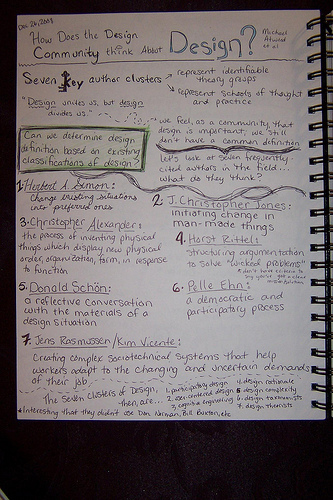 Dec 26, 2009
How Does the Design
Community think About Design?
Michael
Atwood
et al
Seven Key author clusters
→ represent identifiable
theory groups
→ represent schools of thought
and practice
"Design unites us, but design
divides us."
we feel, as a community, that
design is important, we still
don't have a common definition
Can we determine design
definition based on existing
classifications of design?
Let's look at seven frequently-
cited authors in the field...
what do they think?
1. Herbert A. Simon:
Change existing situations
into preferred ones
2. J. Christopher Jones:
initiating change in
man-made things
3. Christopher Alexander:
the process of inventing physical
things which display new physical
order, organization, form, in response
to function
4. Horst Rittel:
structuring argumentation
to solve "wicked problems"
5. Donald Schön:
a reflective conversation
with the materials of a
design situation
6. Pelle Ehn:
a democratic and
participatory process
7. Jens Rasmussen/Kim Vicente:
Creating complex sociotechnical systems that help
workers adapt to the changing and uncertain demands
of their job
The Seven Clusters of Design,
then, are...
1. participatory design
2. user-centered design
3. cognitive engineering
4. design rationale
5. design complexity
6. design taxonomists
7. design theorists
*Interesting that they didn't use Don Norman, Bill Buxton, etc